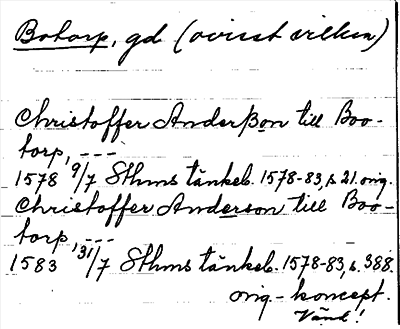 Botorp, gd (ovisst vilken)
Christoffer Anderßon till Boo-
torp, ---
1578 9/7 Sthms tänkeb. 1578-83, s. 21. orig.
Christoffer Anderson till Boo-
torp, ---
1583 31/7 Sthms tänkeb. 1578-83, s. 388.
orig. - koncept.
Vänd!